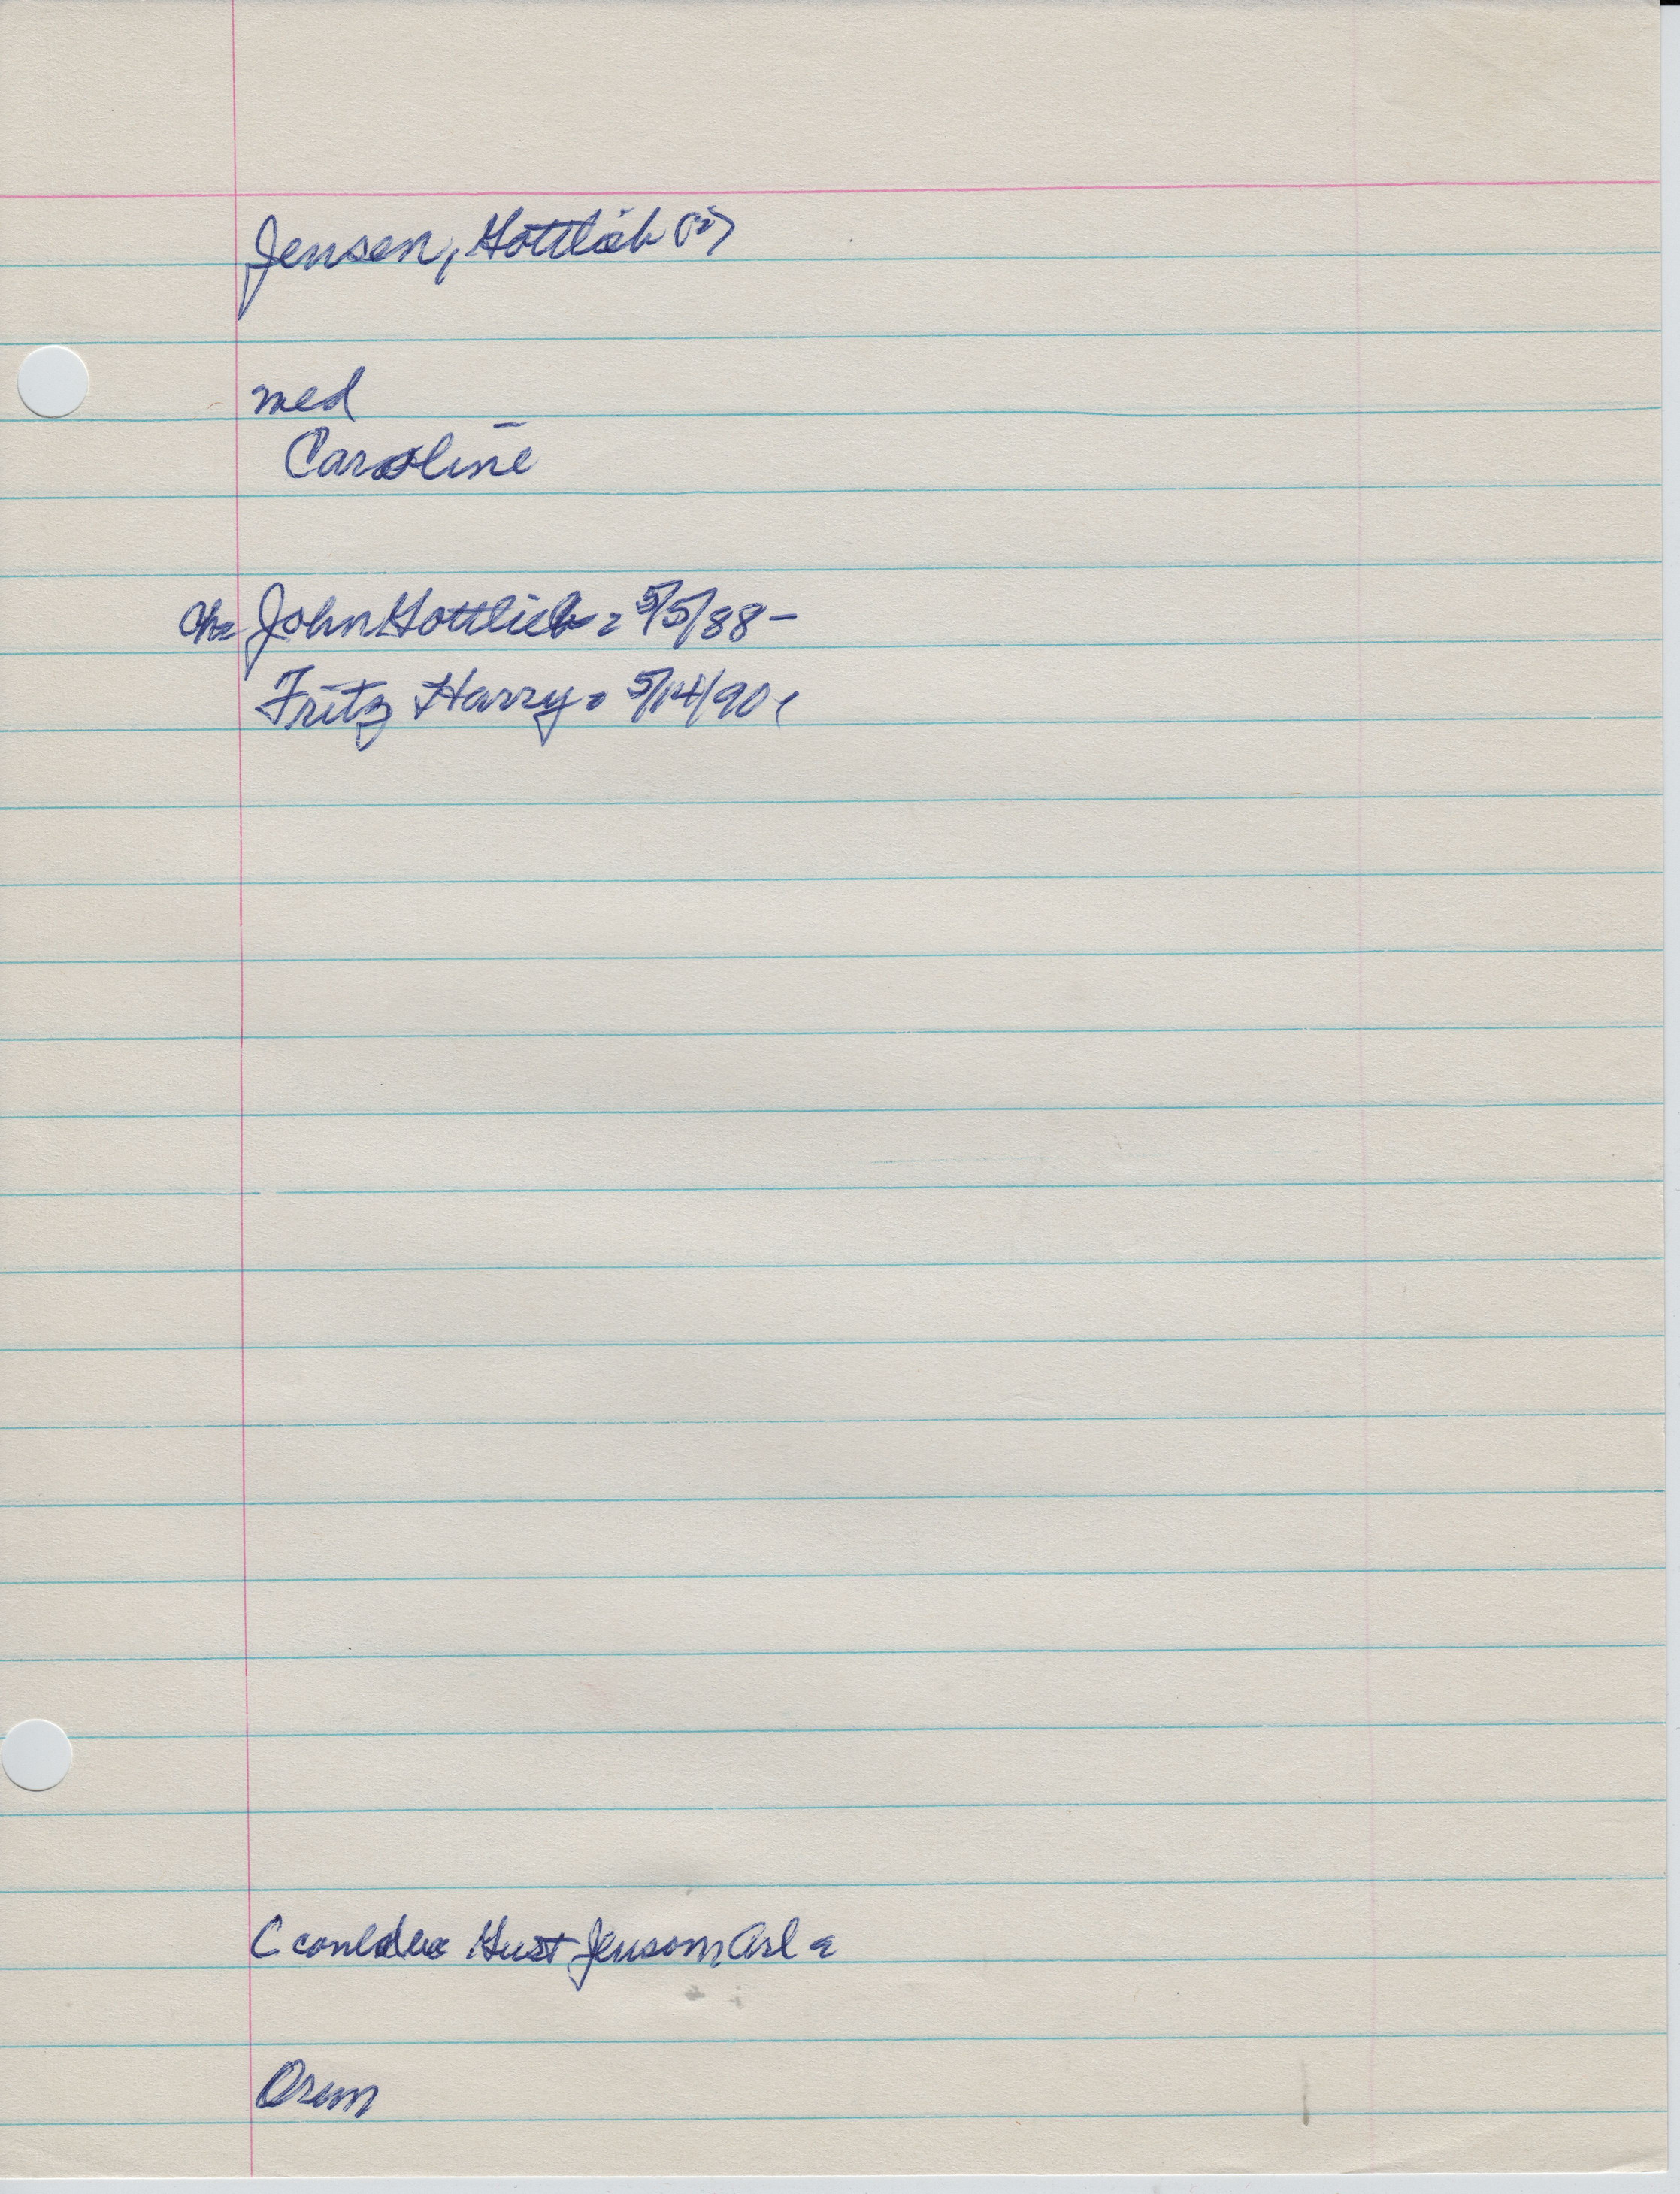 Jensen, Gottlieb (?)
med
Caroline
Ch= John Gottlieb = 5/5/88 -
Fritz Harry = 5/14/90
C could be Gust Jensom Arl =
Orum